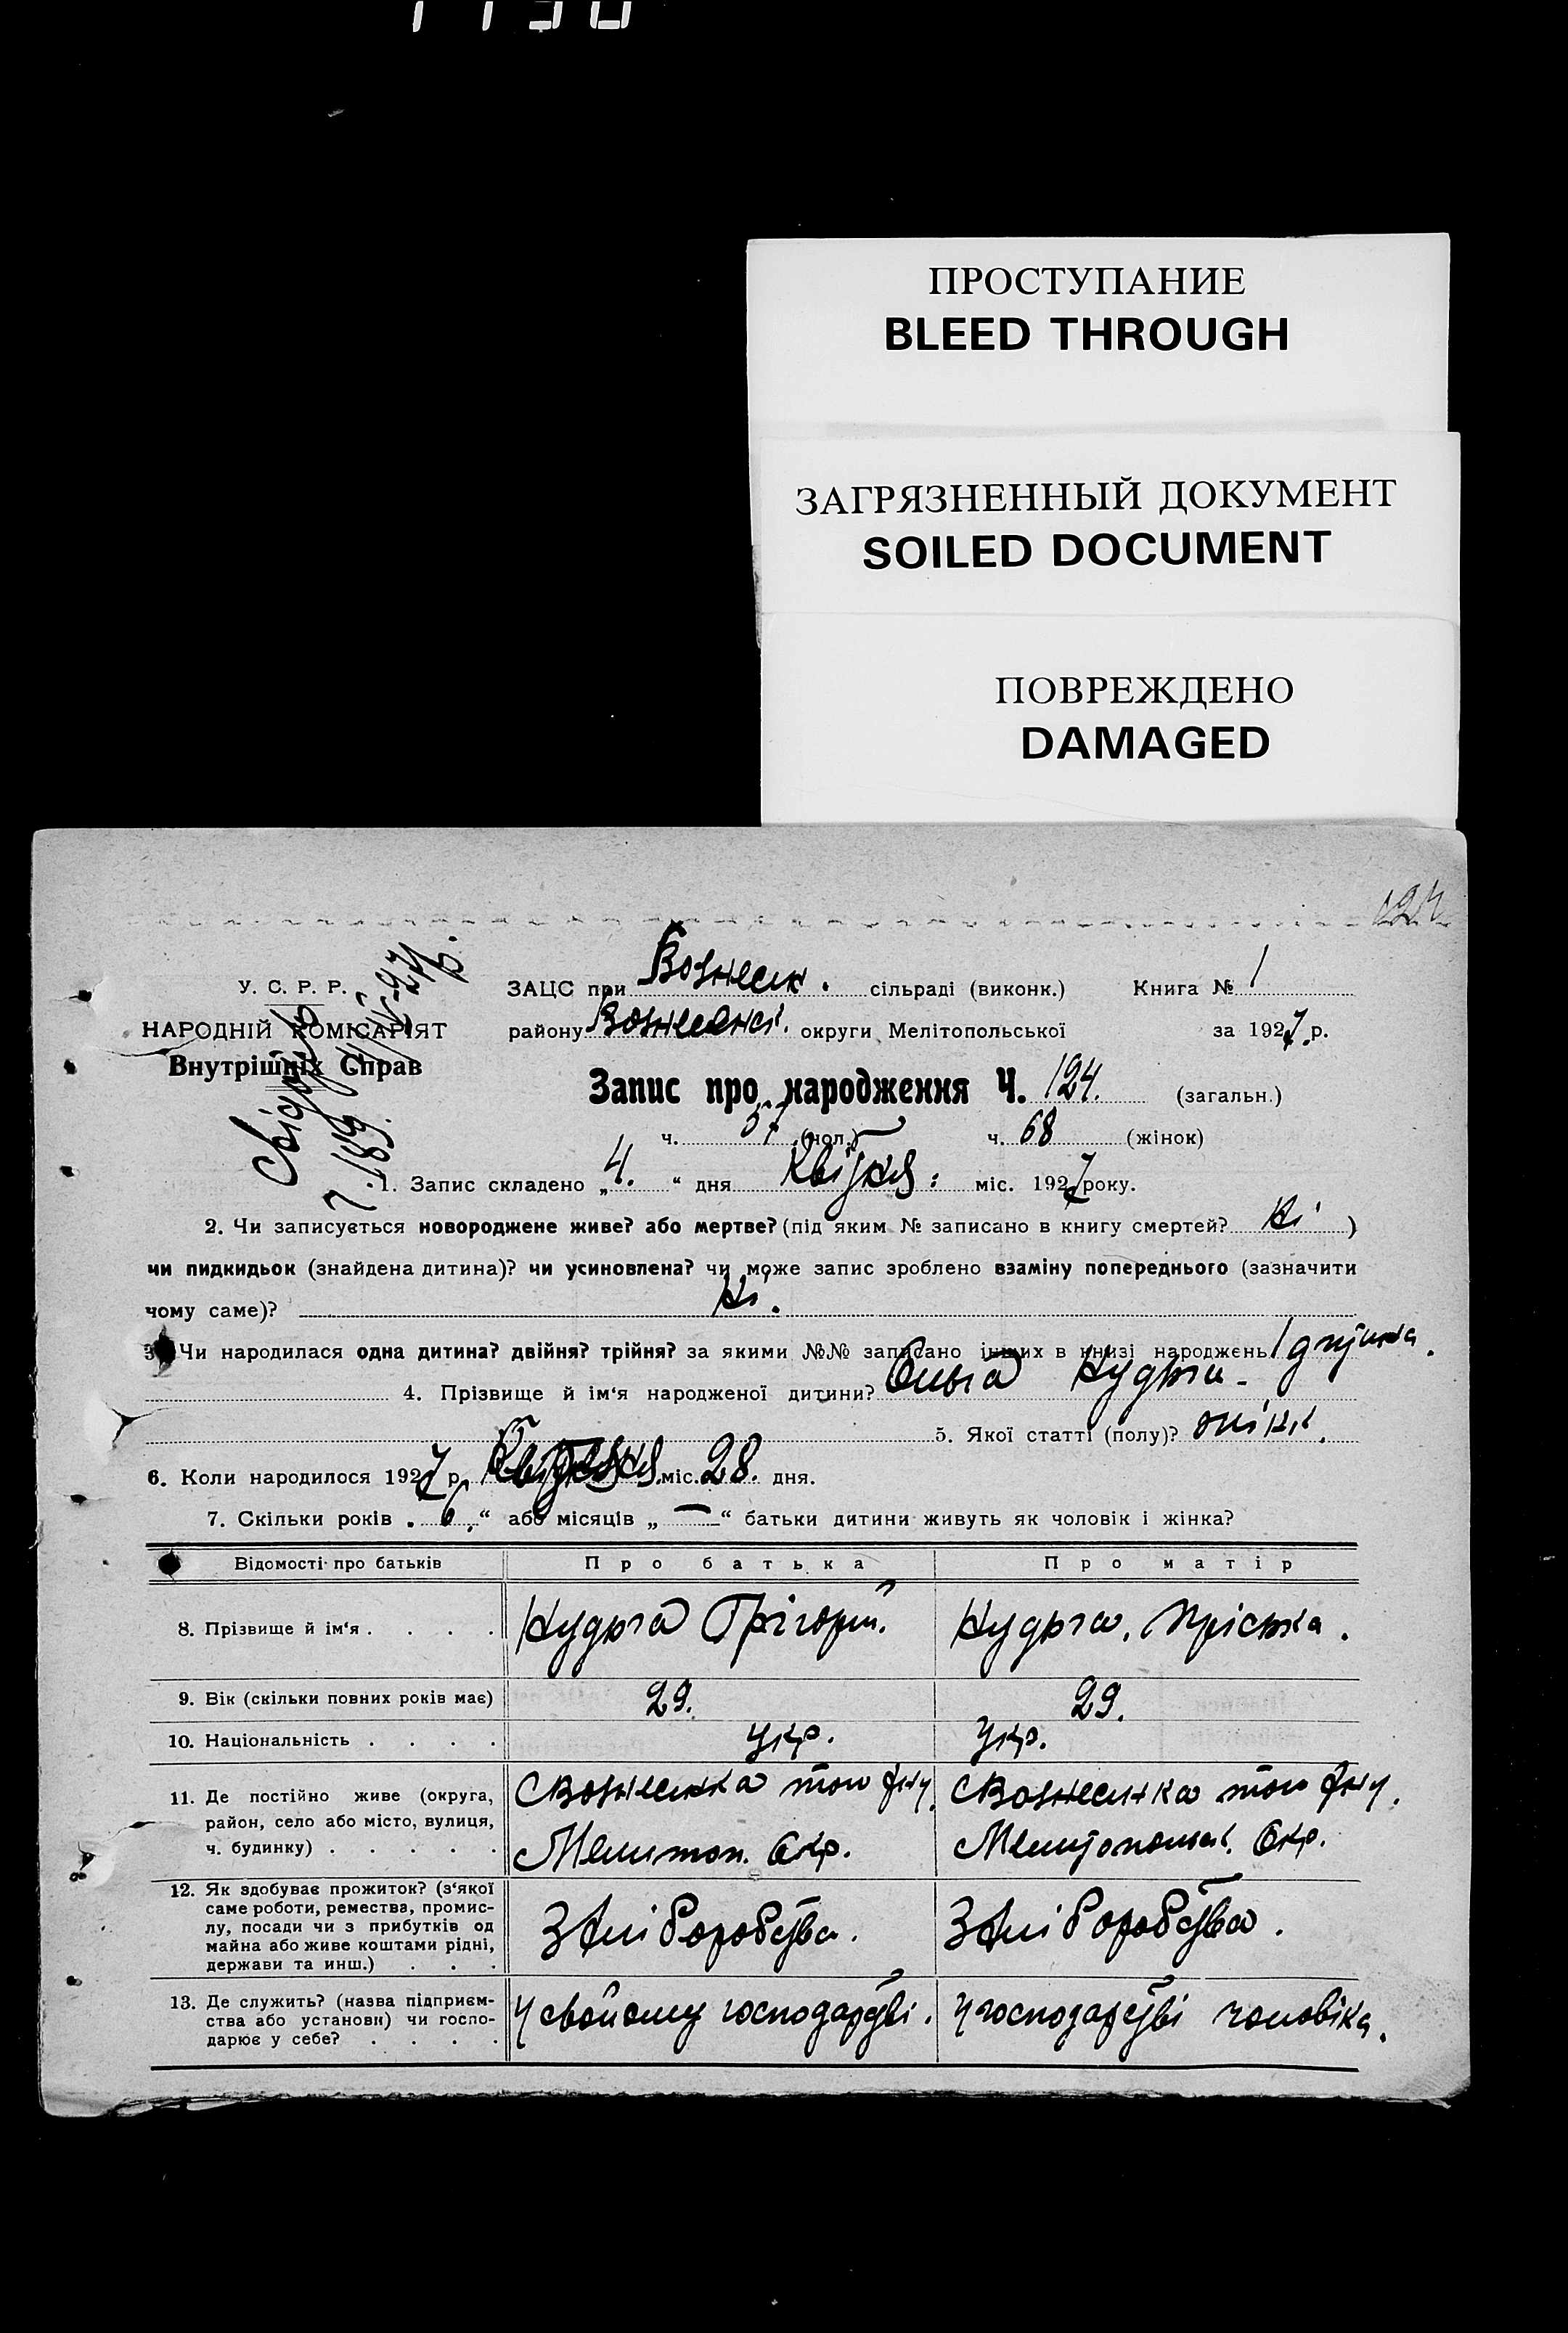 ПРОСТУПАНИЕ
BLEED THROUGH
ЗАГРЯЗНЕННЫЙ ДОКУМЕНТ
SOILED DOCUMENT
ПОВРЕЖДЕНО
DAMAGED
У. С. Р. Р.
НАРОДНІЙ КОМІСАРІЯТ
Внутрішніх Справ
ЗАЦС при Вознесен. сільраді (виконк.) Книга № 1
району округи Мелітопольської за 1927 р.
Запис про народження Ч. 124. (загальн.)
ч. 57 (чол.) ч. 68 (жінок)
1. Запис складено „4.“ дня Квітня: міс. 1927 року.
2. Чи записується новороджене живе? або мертве? (під яким № записано в книгу смертей? Ні)
чи пидкидьок (знайдена дитина)? чи усиновлена? чи може запис зроблено взаміну попереднього (зазначити
чому саме)? Ні.
3. Чи народилася одна дитина? двійня? трійня? за якими №№ записано інших в книзі народжень 1
4. Прізвище й ім'я народженої дитини? Ольга Нудьга
5. Якої статті (полу)?
6. Коли народилося 1927 р. міс. 28. дня.
7. Скільки років „6.“ або місяців „—“ батьки дитини живуть як чоловік і жінка?
Відомості про батьків Про батька Про матір
8. Прізвище й ім'я . . . . Нудьга Грігорій. Нудьга,
9. Вік (скільки повних років має) 29. 29.
10. Національність . . . . Укр. Укр.
11. Де постійно живе (округа,
район, село або місто, вулиця,
ч. будинку) . . . . .
С Вознесенка
Мелитоп. Окр.
С Вознесенка
Окр.
12. Як здобуває прожиток? (з'якої
саме роботи, ремества, промис-
лу, посади чи з прибутків од
майна або живе коштами рідні,
держави та инш.) . . .
З хліборобства.
З хліборобства.
13. Де служить? (назва підприєм-
ства або установи) чи госпо-
дарює у себе? . . . .
У свойому господарстві.
У господарстві чоловіка.